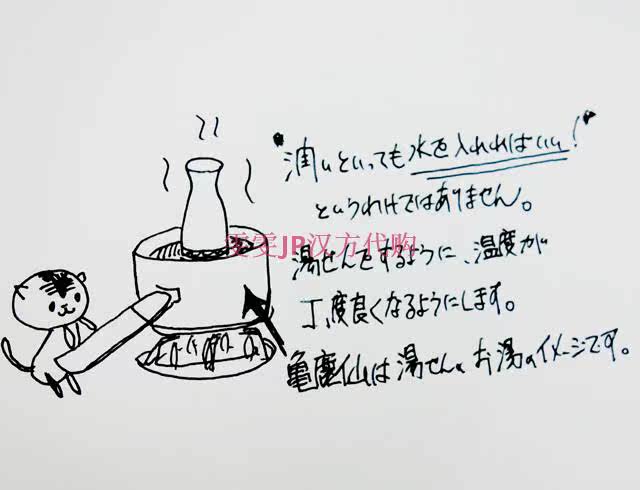 "潤いといっても水を入れればいい!"
というわけではありません。
雯雯JP汉方代购
湯せんをするように、温度が
丁度良くなるようにします。
亀鹿仙は湯せんのお湯のイメージです。